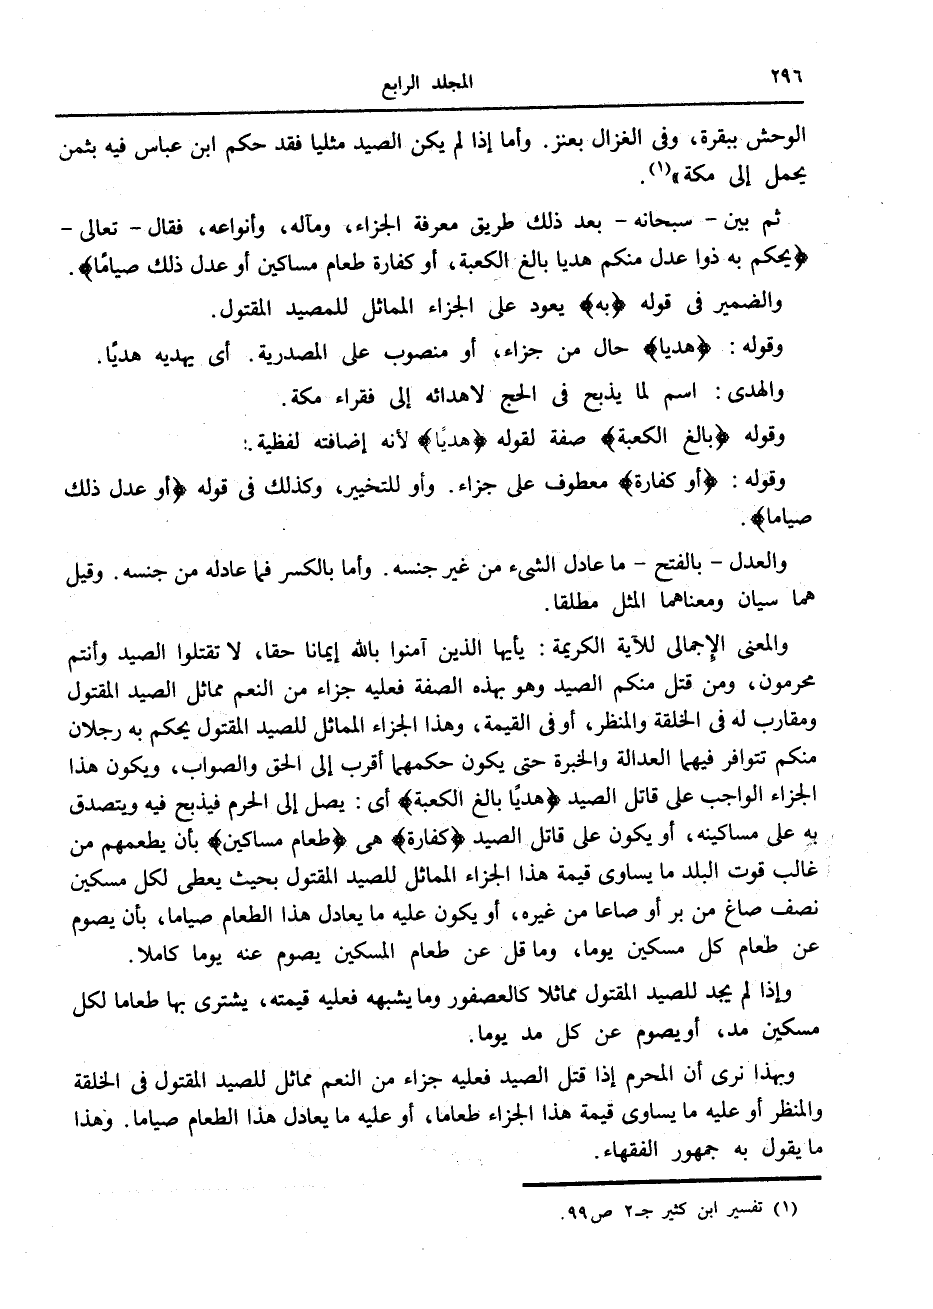 ٢٩٦
المجلد الرابع
الوحش ببقرة، وفى الغزال بعنز. وأما إذا لم يكن الصيد مثليا فقد حكم ابن عباس فيه بثمن
يحمل إلى مكة»(١).
ثم بين – سبحانه – بعد ذلك طريق معرفة الجزاء، ومآله، وأنواعه، فقال – تعالى –
﴿يحكم به ذوا عدل منكم هديا بالغ الكعبة، أو كفارة طعام مساكين أو عدل ذلك صيامًا﴾.
والضمير فى قوله ﴿به﴾ يعود على الجزاء المماثل للمصيد المقتول.
وقوله: ﴿هديا﴾ حال من جزاء، أو منصوب على المصدرية. أى يهديه هديًا.
والهدى: اسم لما يذبح فى الحج لاهدائه إلى فقراء مكة.
وقوله ﴿بالغ الكعبة﴾ صفة لقوله ﴿هديًا﴾ لأنه إضافته لفظية.
وقوله: ﴿أو كفارة﴾ معطوف على جزاء. وأو للتخيير، وكذلك فى قوله ﴿أو عدل ذلك
صياما﴾.
والعدل – بالفتح – ما عادل الشىء من غير جنسه. وأما بالكسر فما عادله من جنسه. وقيل
هما سيان ومعناهما المثل مطلقا.
والمعنى الإجمالى للآية الكريمة: يأيها الذين آمنوا بالله إيمانا حقا، لا تقتلوا الصيد وأنتم
محرمون، ومن قتل منكم الصيد وهو بهذه الصفة فعليه جزاء من النعم مماثل الصيد المقتول
ومقارب له فى الخلقة والمنظر، أو فى القيمة، وهذا الجزاء المماثل للصيد المقتول يحكم به رجلان
منكم تتوافر فيهما العدالة والخبرة حتى يكون حكمهما أقرب إلى الحق والصواب، ويكون هذا
الجزاء الواجب على قاتل الصيد ﴿هديًا بالغ الكعبة﴾ أى: يصل إلى الحرم فيذبح فيه ويتصدق
به على مساكينه، أو يكون على قاتل الصيد ﴿كفارة﴾ هى ﴿طعام مساكين﴾ بأن يطعمهم من
غالب قوت البلد ما يساوى قيمة هذا الجزاء المماثل للصيد المقتول بحيث يعطى لكل مسكين
نصف صاغ من بر أو صاعا من غيره، أو يكون عليه ما يعادل هذا الطعام صياما، بأن يصوم
عن طعام كل مسكين يوما، وما قل عن طعام المسكين يصوم عنه يوما كاملا.
وإذا لم يجد للصيد المقتول مماثلا كالعصفور وما يشبهه فعليه قيمته، يشترى بها طعاما لكل
مسكين مد، أو يصوم عن كل مد يوما.
وبهذا نرى أن المحرم إذا قتل الصيد فعليه جزاء من النعم مماثل للصيد المقتول فى الخلقة
والمنظر أو عليه ما يساوى قيمة هذا الجزاء طعاما، أو عليه ما يعادل هذا الطعام صياما. وهذا
ما يقول به جمهور الفقهاء.
(١) تفسير ابن كثير جـ٢ ص٩٩.